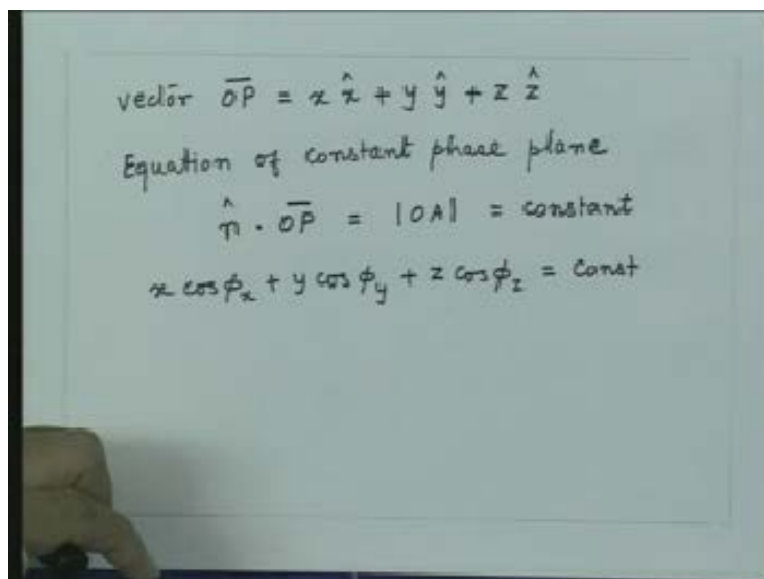 vector O̅P̅ = x x̂ + y ŷ + z ẑ
Equation of constant phase plane
n̂ · O̅P̅ = |OA| = constant
x cos ϕₓ + y cos ϕ_y + z cos ϕ_z = const